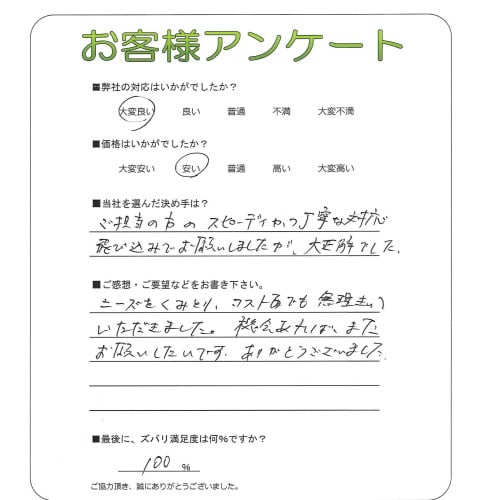 お客様アンケート
■弊社の対応はいかがでしたか？
大変良い 良い 普通 不満 大変不満
■価格はいかがでしたか？
大変安い 安い 普通 高い 大変高い
■当社を選んだ決め手は？
ご担当の方のスピーディかつ丁寧な対応
飛び込みでお願いしましたが、大正解でした。
■ご感想・ご要望などをお書き下さい。
ニーズをくみとり、コスト面でも無理きいて
いただきました。機会あれば、また
お願いしたいです。ありがとうございました。
■最後に、ズバリ満足度は何％ですか？
100 ％
ご協力頂き、誠にありがとうございました。